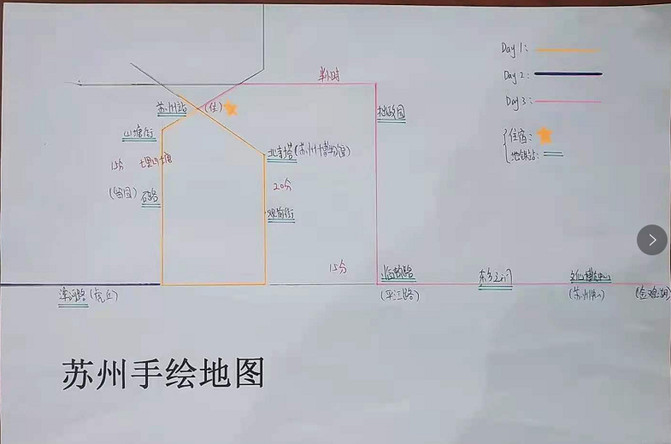 Day 1:
Day 2:
Day 3:
半小时
苏州站 (住)
拙政园
住宿:
地铁站:
山塘街
北寺塔(苏州博物馆)
15分 七里山塘
20分
(留园) 石路
观前街
15分
临顿路
东方之门
文化博览中心
(虎丘)
(平江路)
(金鸡湖)
苏州手绘地图